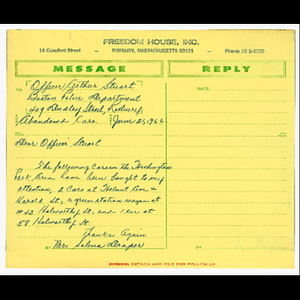 FREEDOM HOUSE, INC.
14 Crawford Street ROXBURY, MASSACHUSETTS 02121 Phone: HI 5-6700
MESSAGE REPLY
TO Officer Arthur Stuart
Boston Police Department
409 Dudley Street, Roxbury
DATE:
Abandoned Cars. June 21, 1966
Dear Officer Stuart
The following cars in the Washington
Park Area have been brought to my
attention, 2 Cars at Holmut Ave &
Harold St., a green station wagon at
#22 Holworthy St., and 1 car at
58 Holworthy St.
Thanks Again
Mrs. Selma Draper
DETACH AND FILE FOR FOLLOW-UP